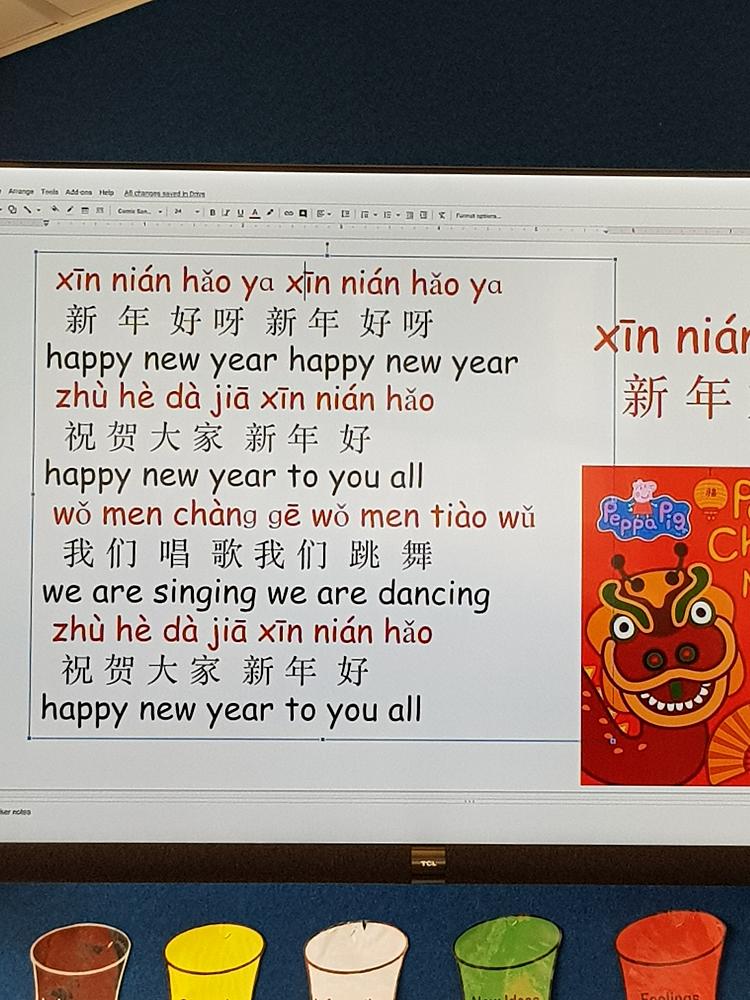 Arrange Tools Add-ons Help All changes saved in Drive
Comic San... 24 B I U A Format options...
xīn nián hǎo ya xīn nián hǎo ya
新 年 好 呀 新 年 好 呀
happy new year happy new year
zhù hè dà jiā xīn nián hǎo
祝 贺 大 家 新 年 好
happy new year to you all
wǒ men chàng gē wǒ men tiào wǔ
我 们 唱 歌 我 们 跳 舞
we are singing we are dancing
zhù hè dà jiā xīn nián hǎo
祝 贺 大 家 新 年 好
happy new year to you all
xīn nián
新 年
Peppa Pig
福
TCL
New Ideas
Feelings